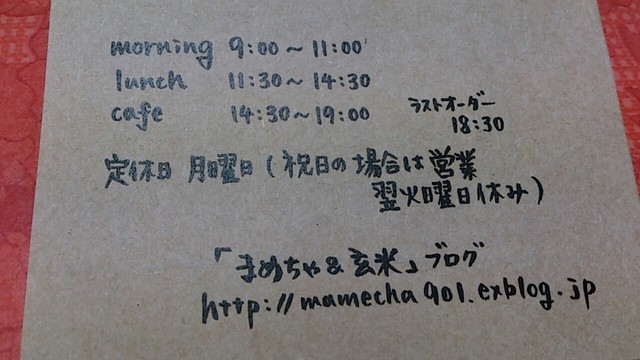 morning 9:00～11:00
lunch 11:30～14:30
cafe 14:30～19:00 ラストオーダー
18:30
定休日 月曜日(祝日の場合は営業
翌火曜日休み)
「まめちゃ&玄米」ブログ
http://mamecha901.exblog.jp